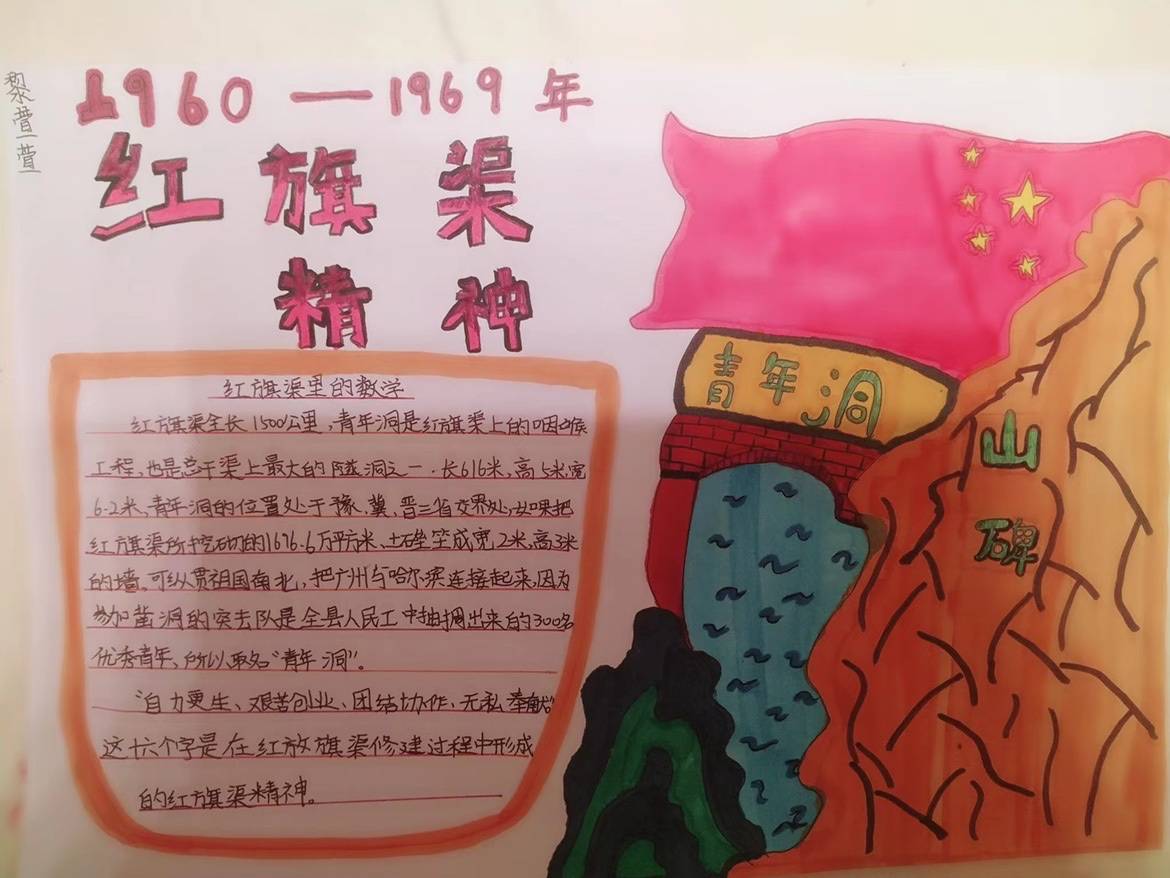 黎萱萱
1960 — 1969 年
红 旗 渠
精 神
红旗渠里的数学
红旗渠全长1500公里,青年洞是红旗渠上的咽喉
工程,也是总干渠上最大的隧洞之一.长616米,高5米,宽
6.2米,青年洞的位置处于豫、冀、晋三省交界处,如果把
红旗渠所挖砌的1676.6万平方米、土砖垒成宽2米,高3米
的墙,可纵贯祖国南北,把广州与哈尔滨连接起来,因为
参加凿洞的突击队是全县人民工中抽调出来的300名
优秀青年、所以取名“青年洞”。
“自力更生、艰苦创业、团结协作、无私奉献”
这十六个字是在红放旗渠修建过程中形成
的红旗渠精神。
青年洞
山
碑